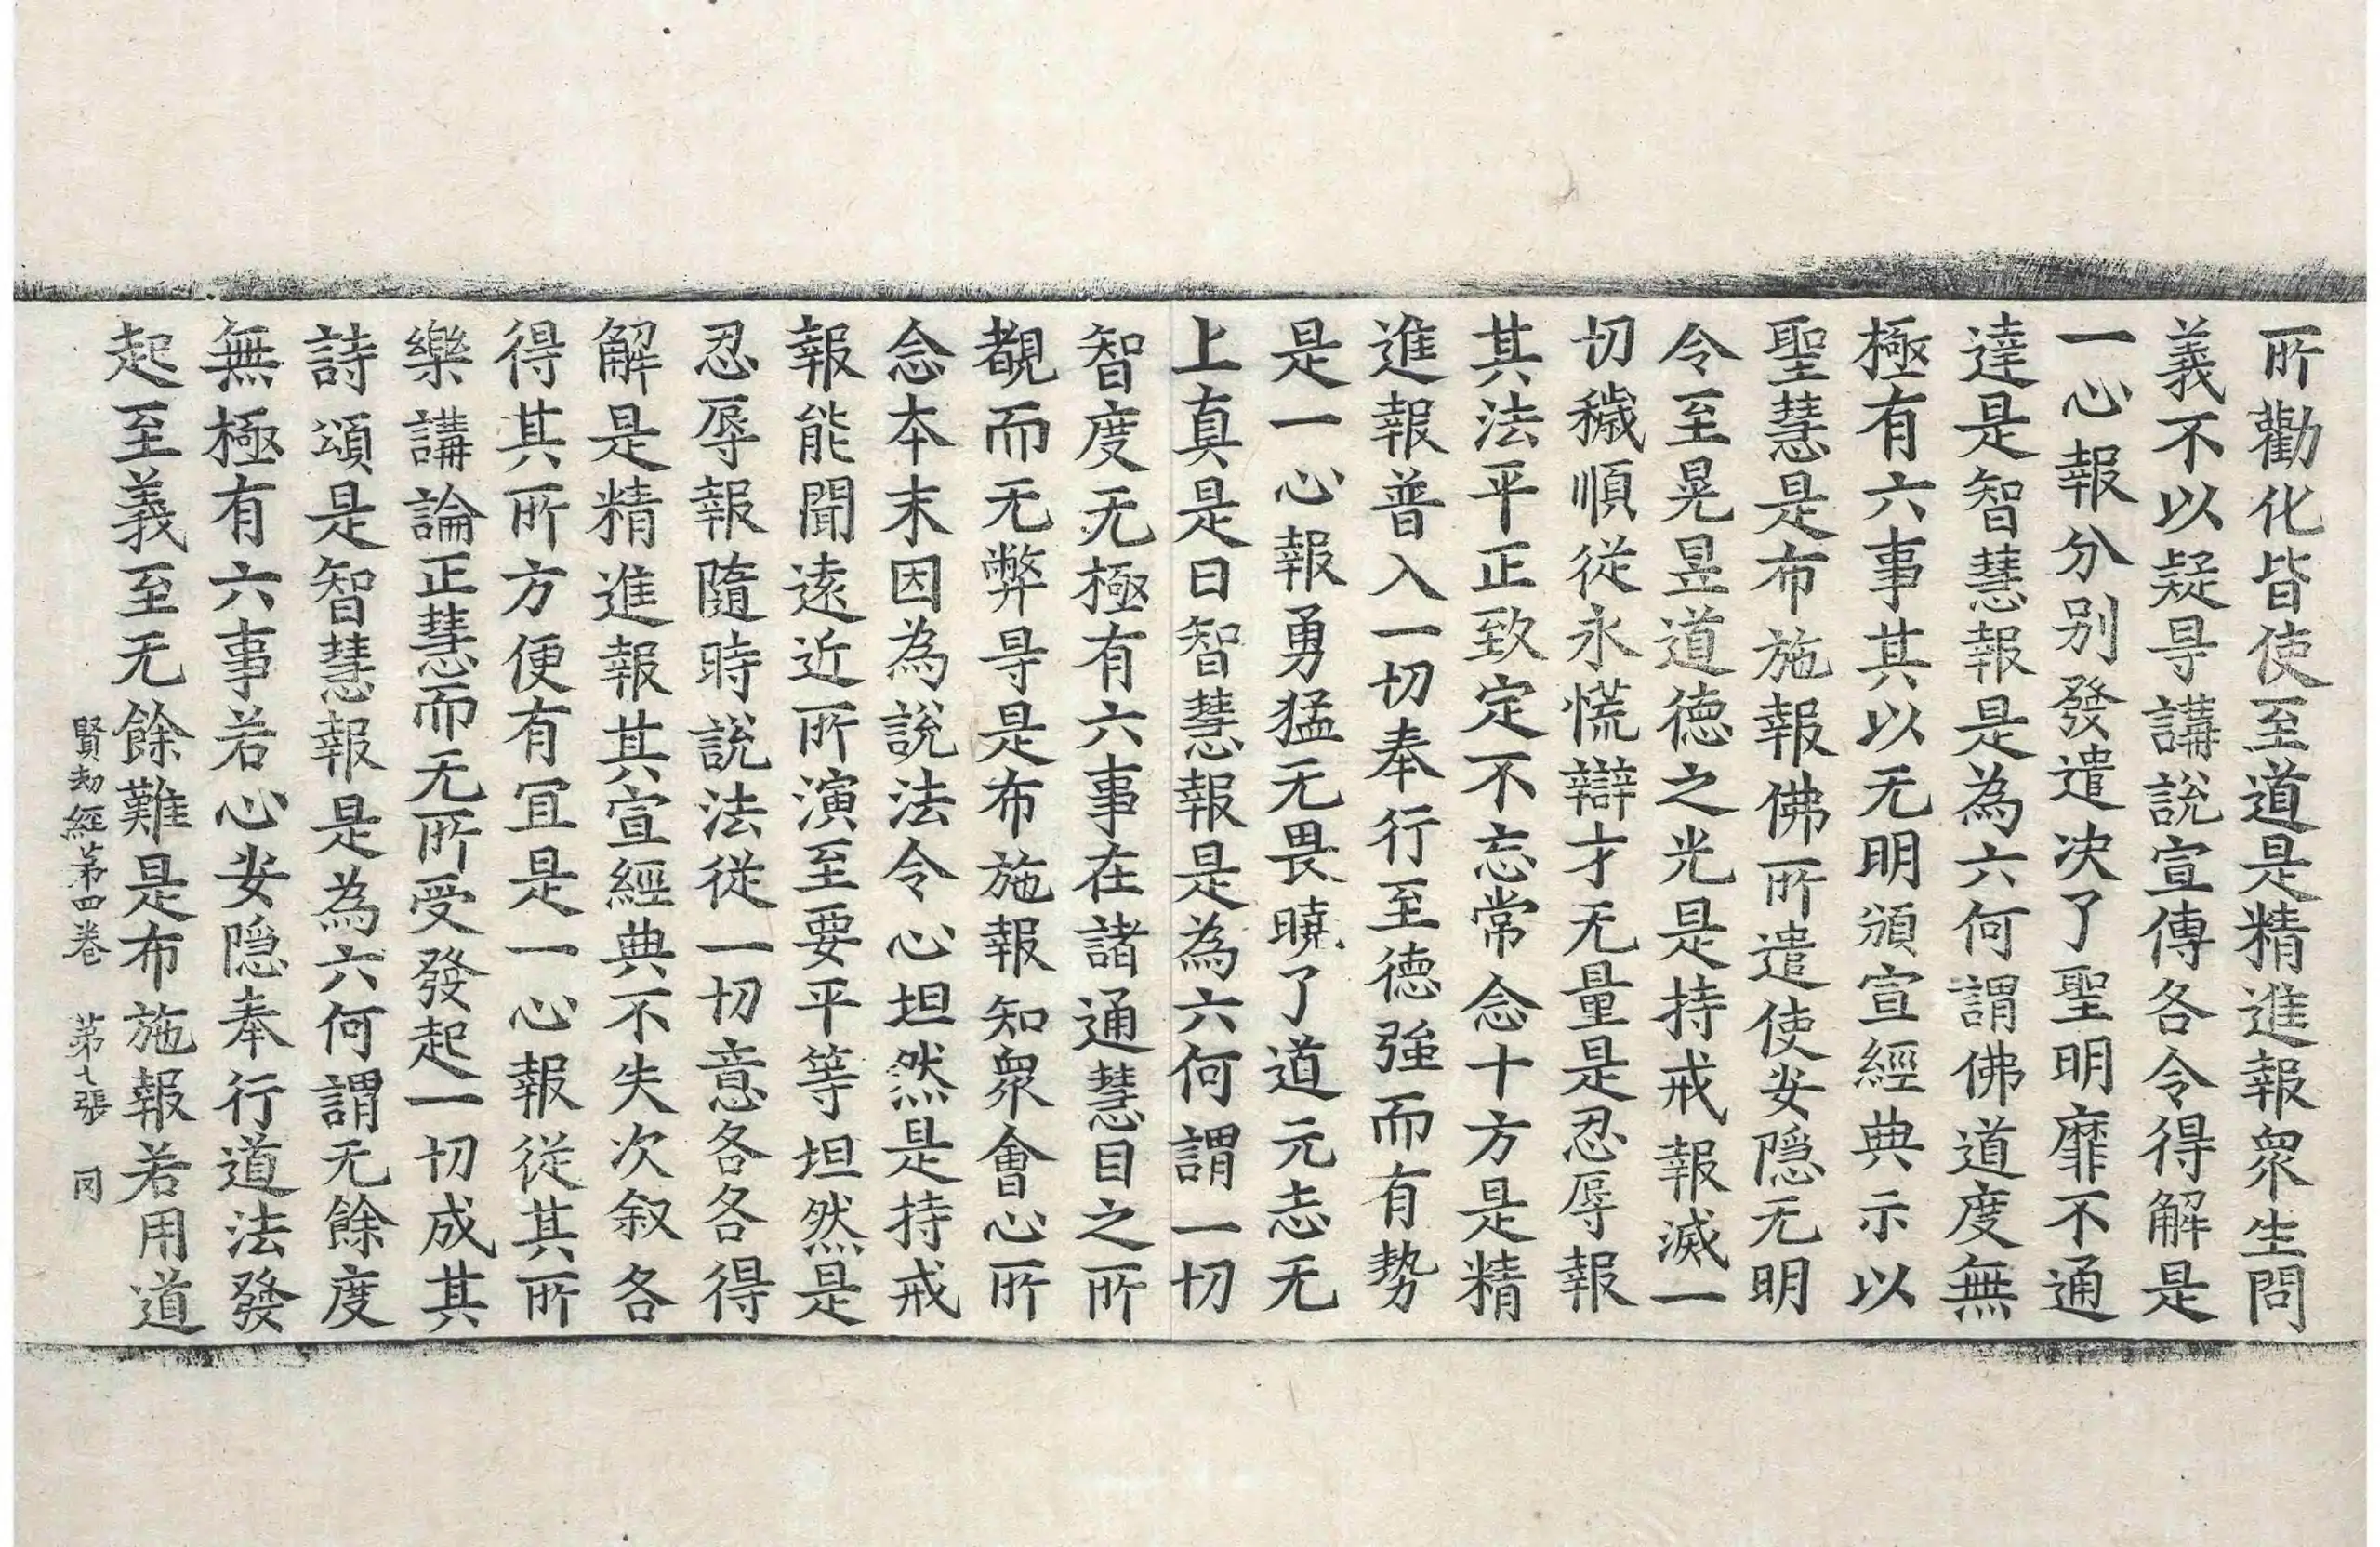 所勸化皆使至道是精進報衆生問
義不以疑㝵講說宣傳各令得解是
一心報分别發遣决了聖明靡不通
達是智慧報是為六何謂佛道度無
極有六事其以无明頒宣經典示以
聖慧是布施報佛所遣使安隱无明
令至晃昱道德之光是持戒報滅一
切穢順從永慌辯才无量是忍辱報
其法平正致定不忘常念十方是精
進報普入一切奉行至德強而有勢
是一心報勇猛无畏曉了道元志无
上真是曰智慧報是為六何謂一切
智度无極有六事在諸通慧目之所
覩而无弊㝵是布施報知衆會心所
念本末因為說法令心坦然是持戒
報能聞遠近所演至要平等坦然是
忍辱報隨時說法從一切意各各得
解是精進報其宣經典不失次叙各
得其所方便有冝是一心報從其所
樂講論正慧而无所受發起一切成其
詩頌是智慧報是為六何謂无餘度
無極有六事若心安隱奉行道法發
起至義至无餘難是布施報若用道
賢劫經第四卷 第七張 同